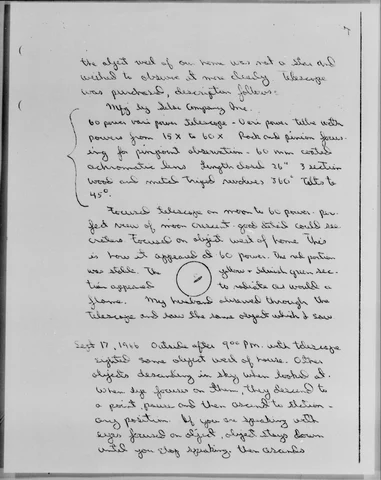 7
the object west of our home was not a star and
wished to observe it more clearly. Telescope
was purchased, description follows:
Mfg by Selsi Company Inc.
60 power vari power telescope - Vari power tube with
powers from 15X to 60X Rack and pinion focus-
ing for pinpoint observation - 60 mm coated
achromatic lens length closed 26" 3 section
wood and metal tripod revolves 360° Tilts to
45°.
Focused telescope on moon to 60 power - per-
fect view of moon crescent - good detail could see
craters Focused on object west of home This
is how it appeared at 60 power. The red portion
was stable. The yellow & bluish green sec-
tion appeared to radiate as would a
flame. My husband observed through the
telescope and saw the same object which I saw
Sept 17, 1966 Outside after 9:00 P.M. with telescope
sighted same object west of house. Other
objects descending in sky when looked at.
When eye focuses on them, they descend to
a point, pause, and then ascend to station-
ary position. If you are speaking with
eyes focused on object, object stays down
until you stop speaking, then ascends